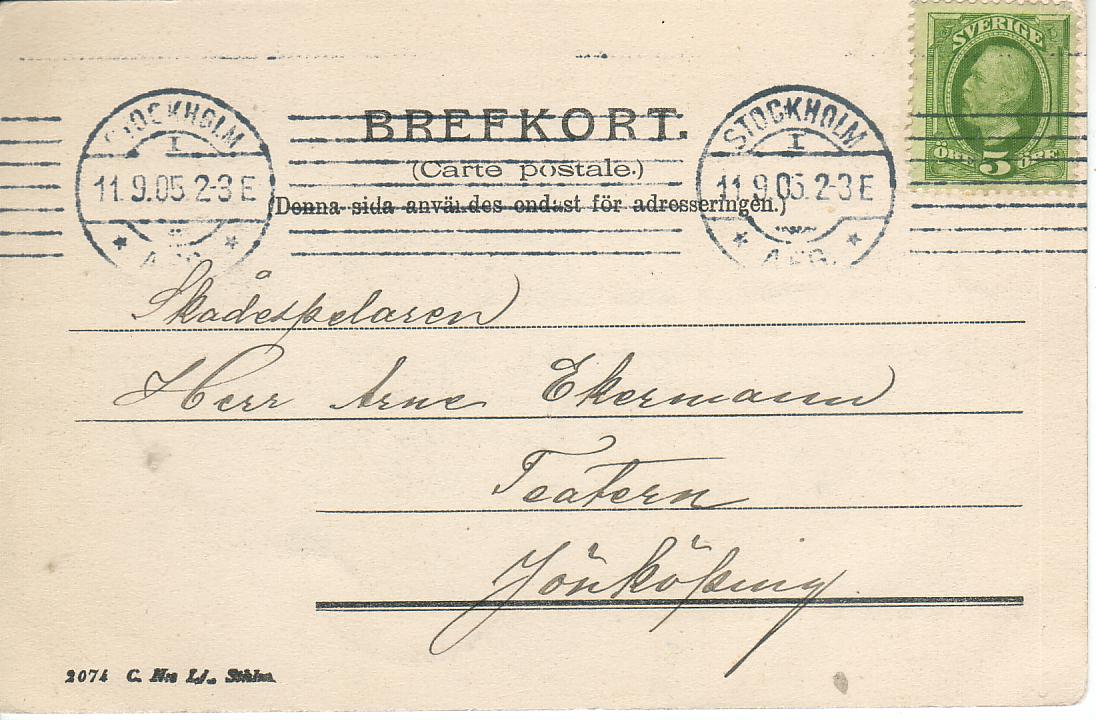 SVERIGE
ÖRE 5 ÖRE
STOCKHOLM
1
11.9.05. 2-3 E
AFG.
STOCKHOLM
1
11.9.05. 2-3 E
AFG.
BREFKORT.
(Carte postale.)
(Denna sida användes endast för adresseringen.)
Skådespelaren
Herr Arne Ekermann
Teatern
Jönköping
2074 C. N:s Lj., Sthlm.